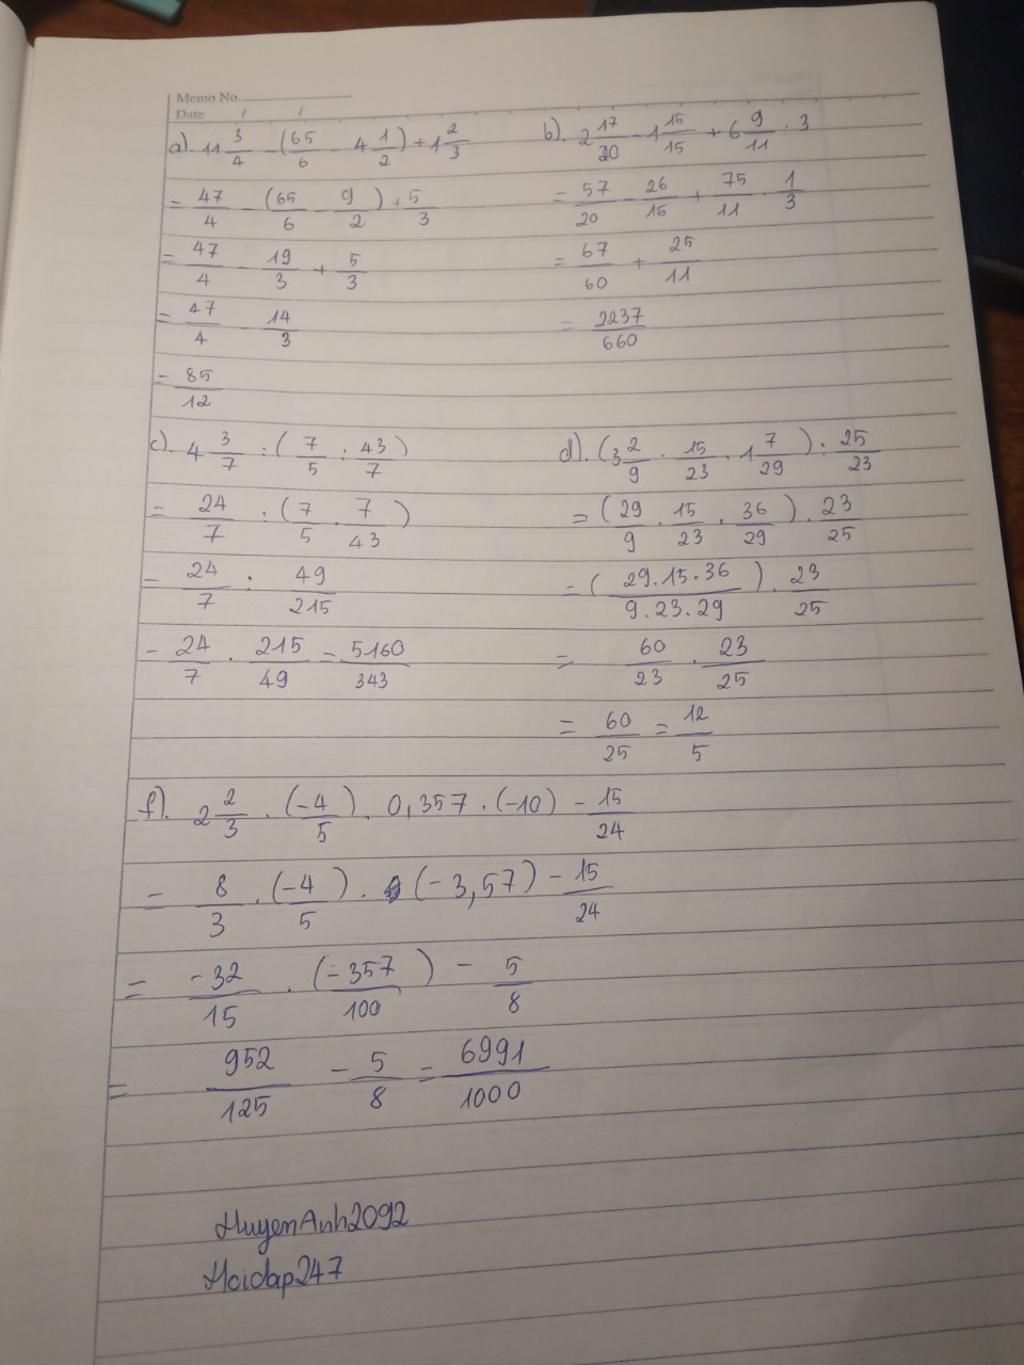 Memo No.
Date / /
a). 11 3/4 - (65/6 - 4 1/2) + 1 2/3
= 47/4 - (65/6 - 9/2) + 5/3
= 47/4 - 19/3 + 5/3
= 47/4 - 14/3
= 85/12
b). 2 17/20 - 1 15/15 + 6 9/11 : 3
= 57/20 - 26/15 + 75/11 . 1/3
= 67/60 + 25/11
= 2237/660
c). 4 3/7 : (7/5 : 43/7)
= 24/7 : (7/5 . 7/43)
= 24/7 : 49/215
= 24/7 . 215/49 = 5160/343
d). (3 2/9 . 15/23 . 1 7/29) : 25/23
= (29/9 . 15/23 . 36/29) . 23/25
= (29.15.36/9.23.29) . 23/25
= 60/23 . 23/25
= 60/25 = 12/5
f). 2 2/3 . (-4/5) . 0,357 . (-10) - 15/24
= 8/3 . (-4/5) . (-3,57) - 15/24
= -32/15 . (-357/100) - 5/8
= 952/125 - 5/8 = 6991/1000
HuyenAnh2092
Hoidap247